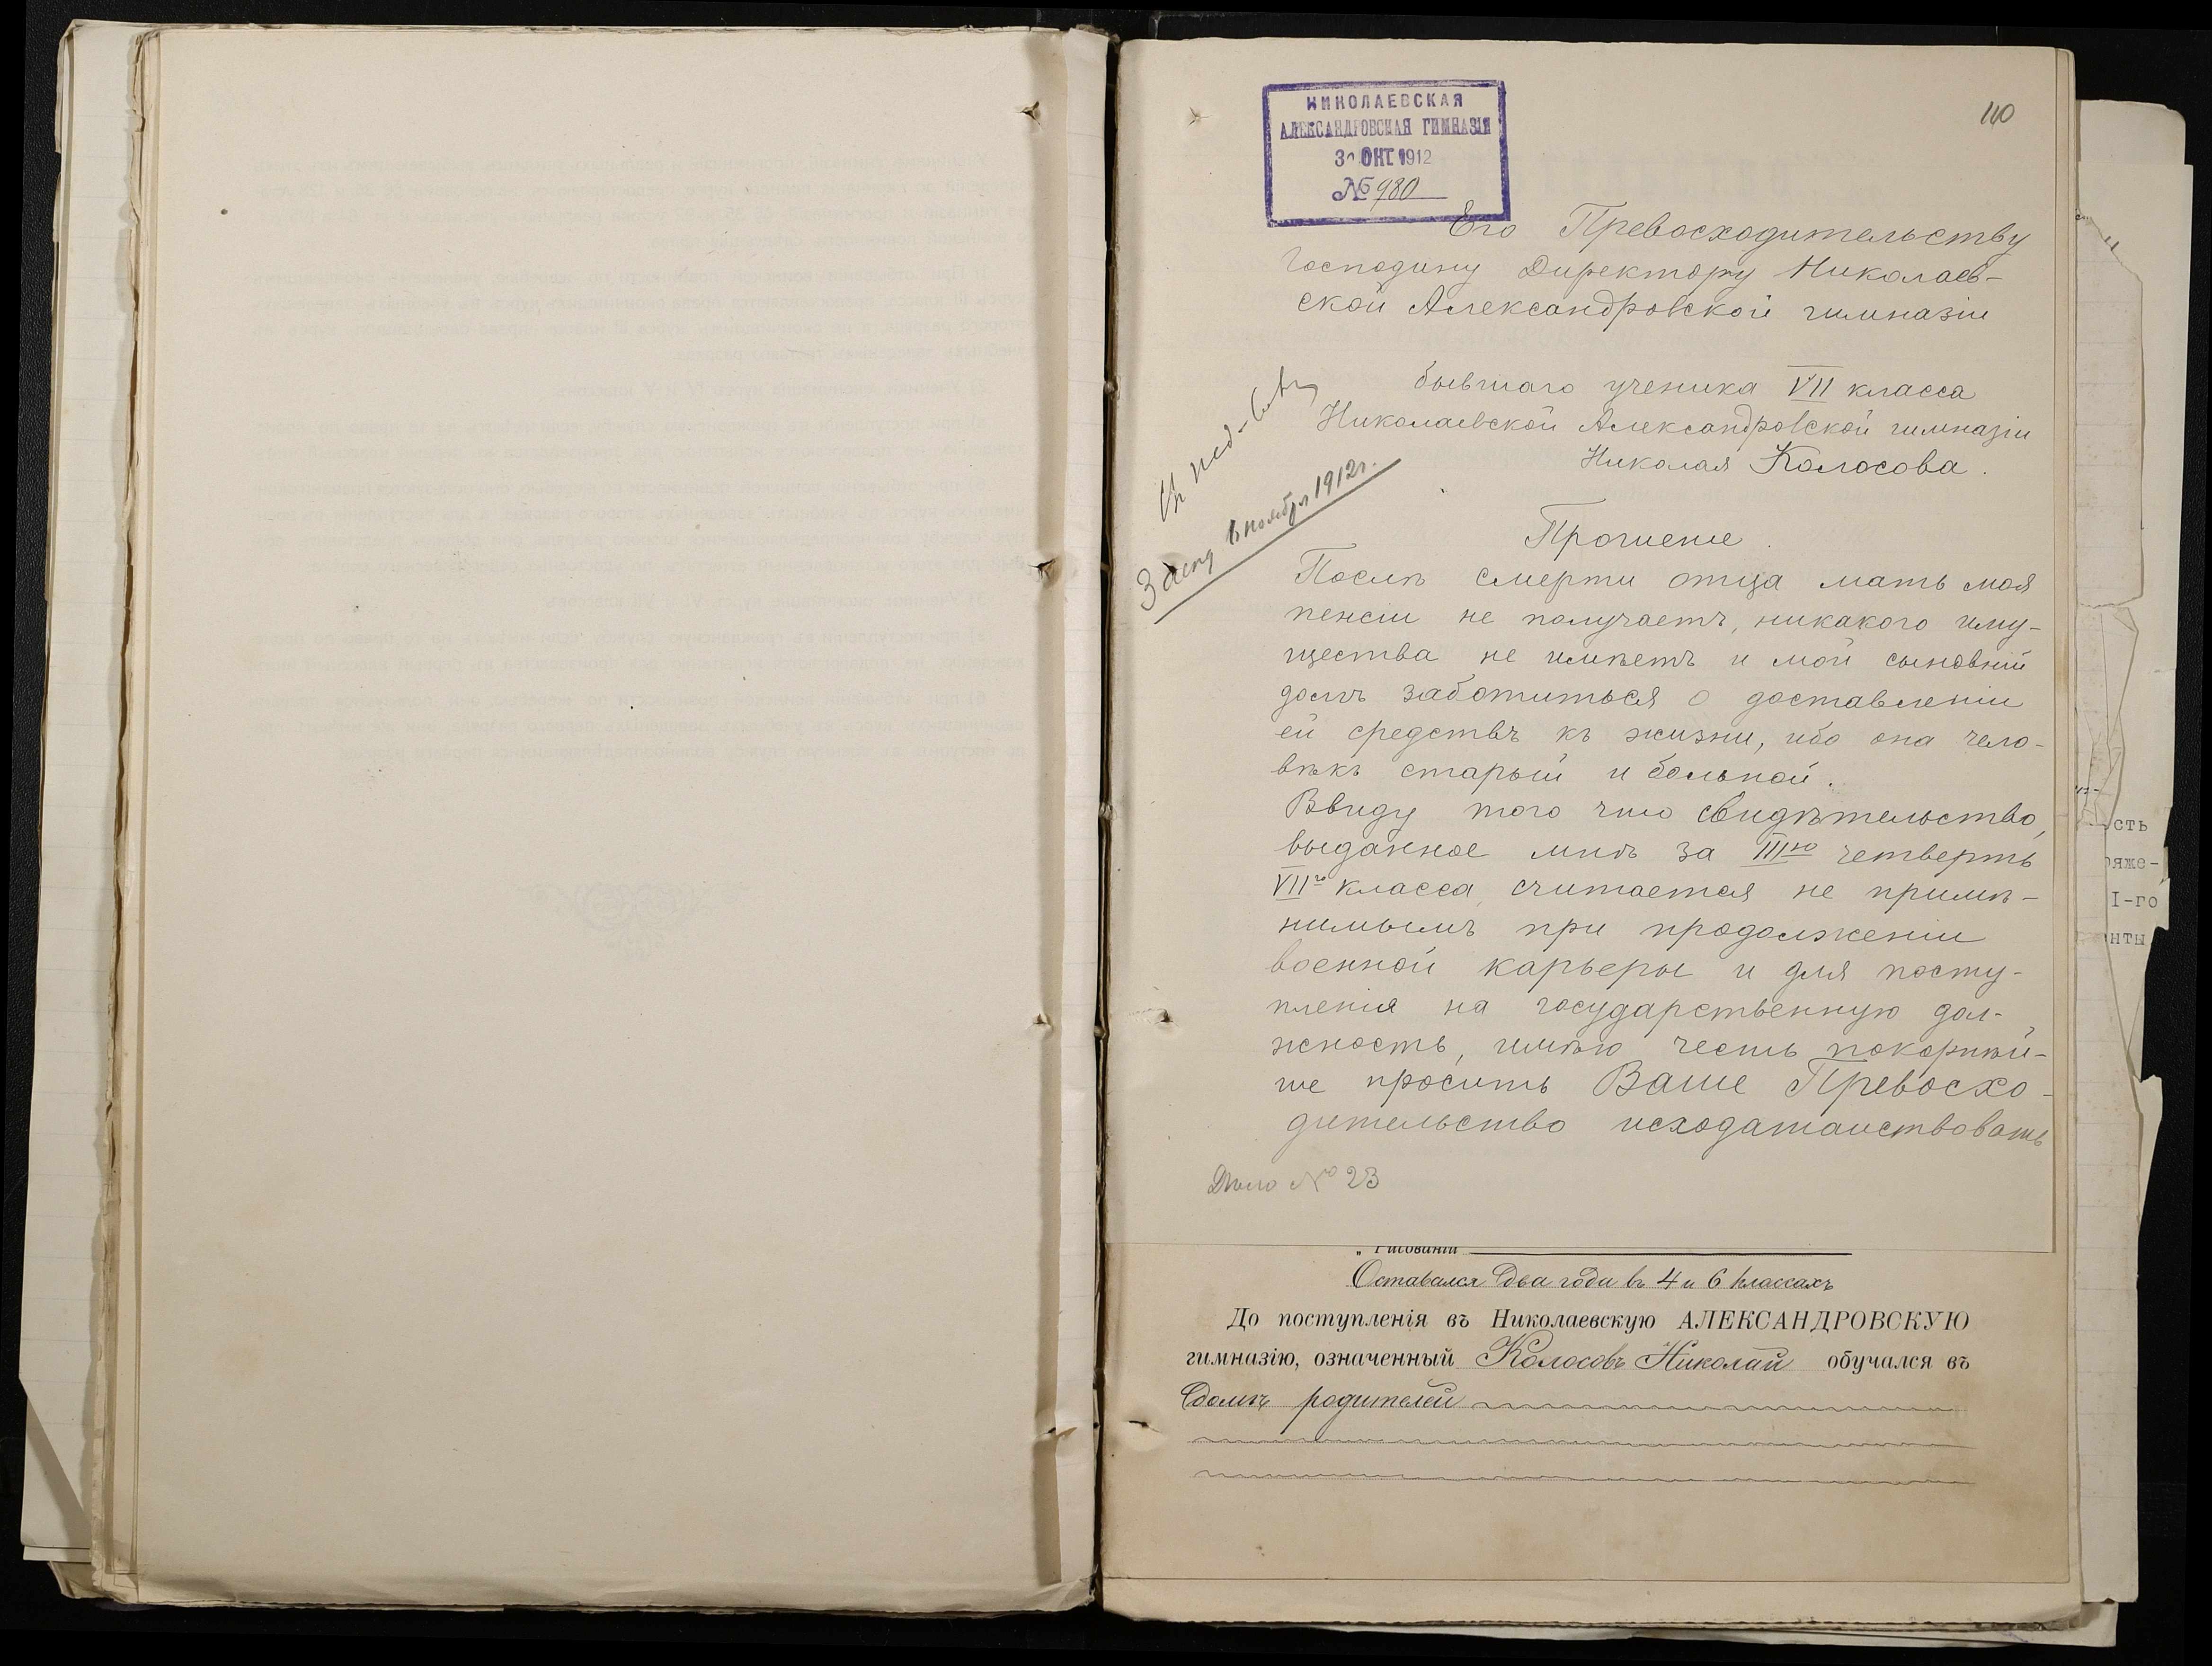 НИКОЛАЕВСКАЯ
АЛЕКСАНДРОВСКАЯ ГИМНАЗІЯ
ОКТ 1912
№ 980
110
Его Превосходительству
Господину Директору Николаев-
ской Александровской гимназіи
бывшаго ученика VII класса
Николаевской Александровской гимназіи
Николая Колосова.
Въ пед-
Засѣд 6 ноября 1912г.
Прошеніе.
Послѣ смерти отца мать моя
пенсіи не получаетъ, никакого иму-
щества не имѣетъ и мой сыновній
долгъ заботиться о доставленіи
ей средствъ къ жизни, ибо она чело-
вѣкъ старый и больной.
Ввиду того что свидѣтельство,
выданное мнѣ за IIIю четверть
VIIго класса, считается не примѣ-
нимымъ при продолженіи
военной карьеры и для посту-
пленія на государственную дол-
жность, имѣю честь покорнѣй-
ше просить Ваше Превосхо-
дительство исходатайствовать
Дѣло № 23
„ Рисованіи
Оставался два года въ 4 и 6 классахъ
До поступленія въ Николаевскую АЛЕКСАНДРОВСКУЮ
гимназію, означенный Колосовъ Николай обучался въ
домѣ родителей
сть
ряже-
I-го
нты